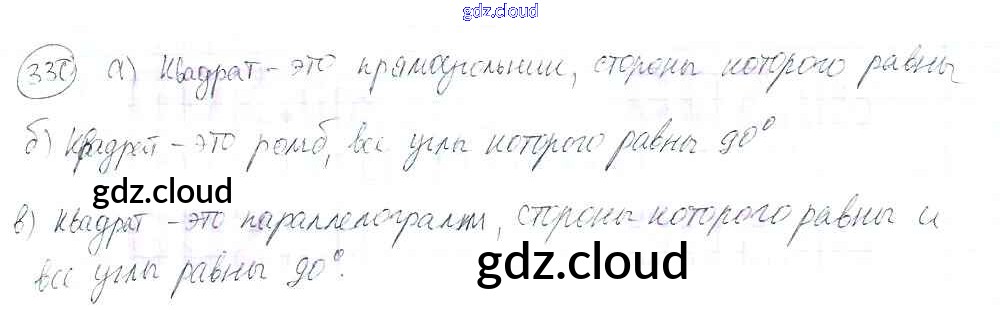 gdz.cloud
330 а) Квадрат - это прямоугольник, стороны которого равны
б) Квадрат - это ромб, все углы которого равны 90°
gdz.cloud
в) Квадрат - это параллелограмм, стороны которого равны и
gdz.cloud
все углы равны 90°.